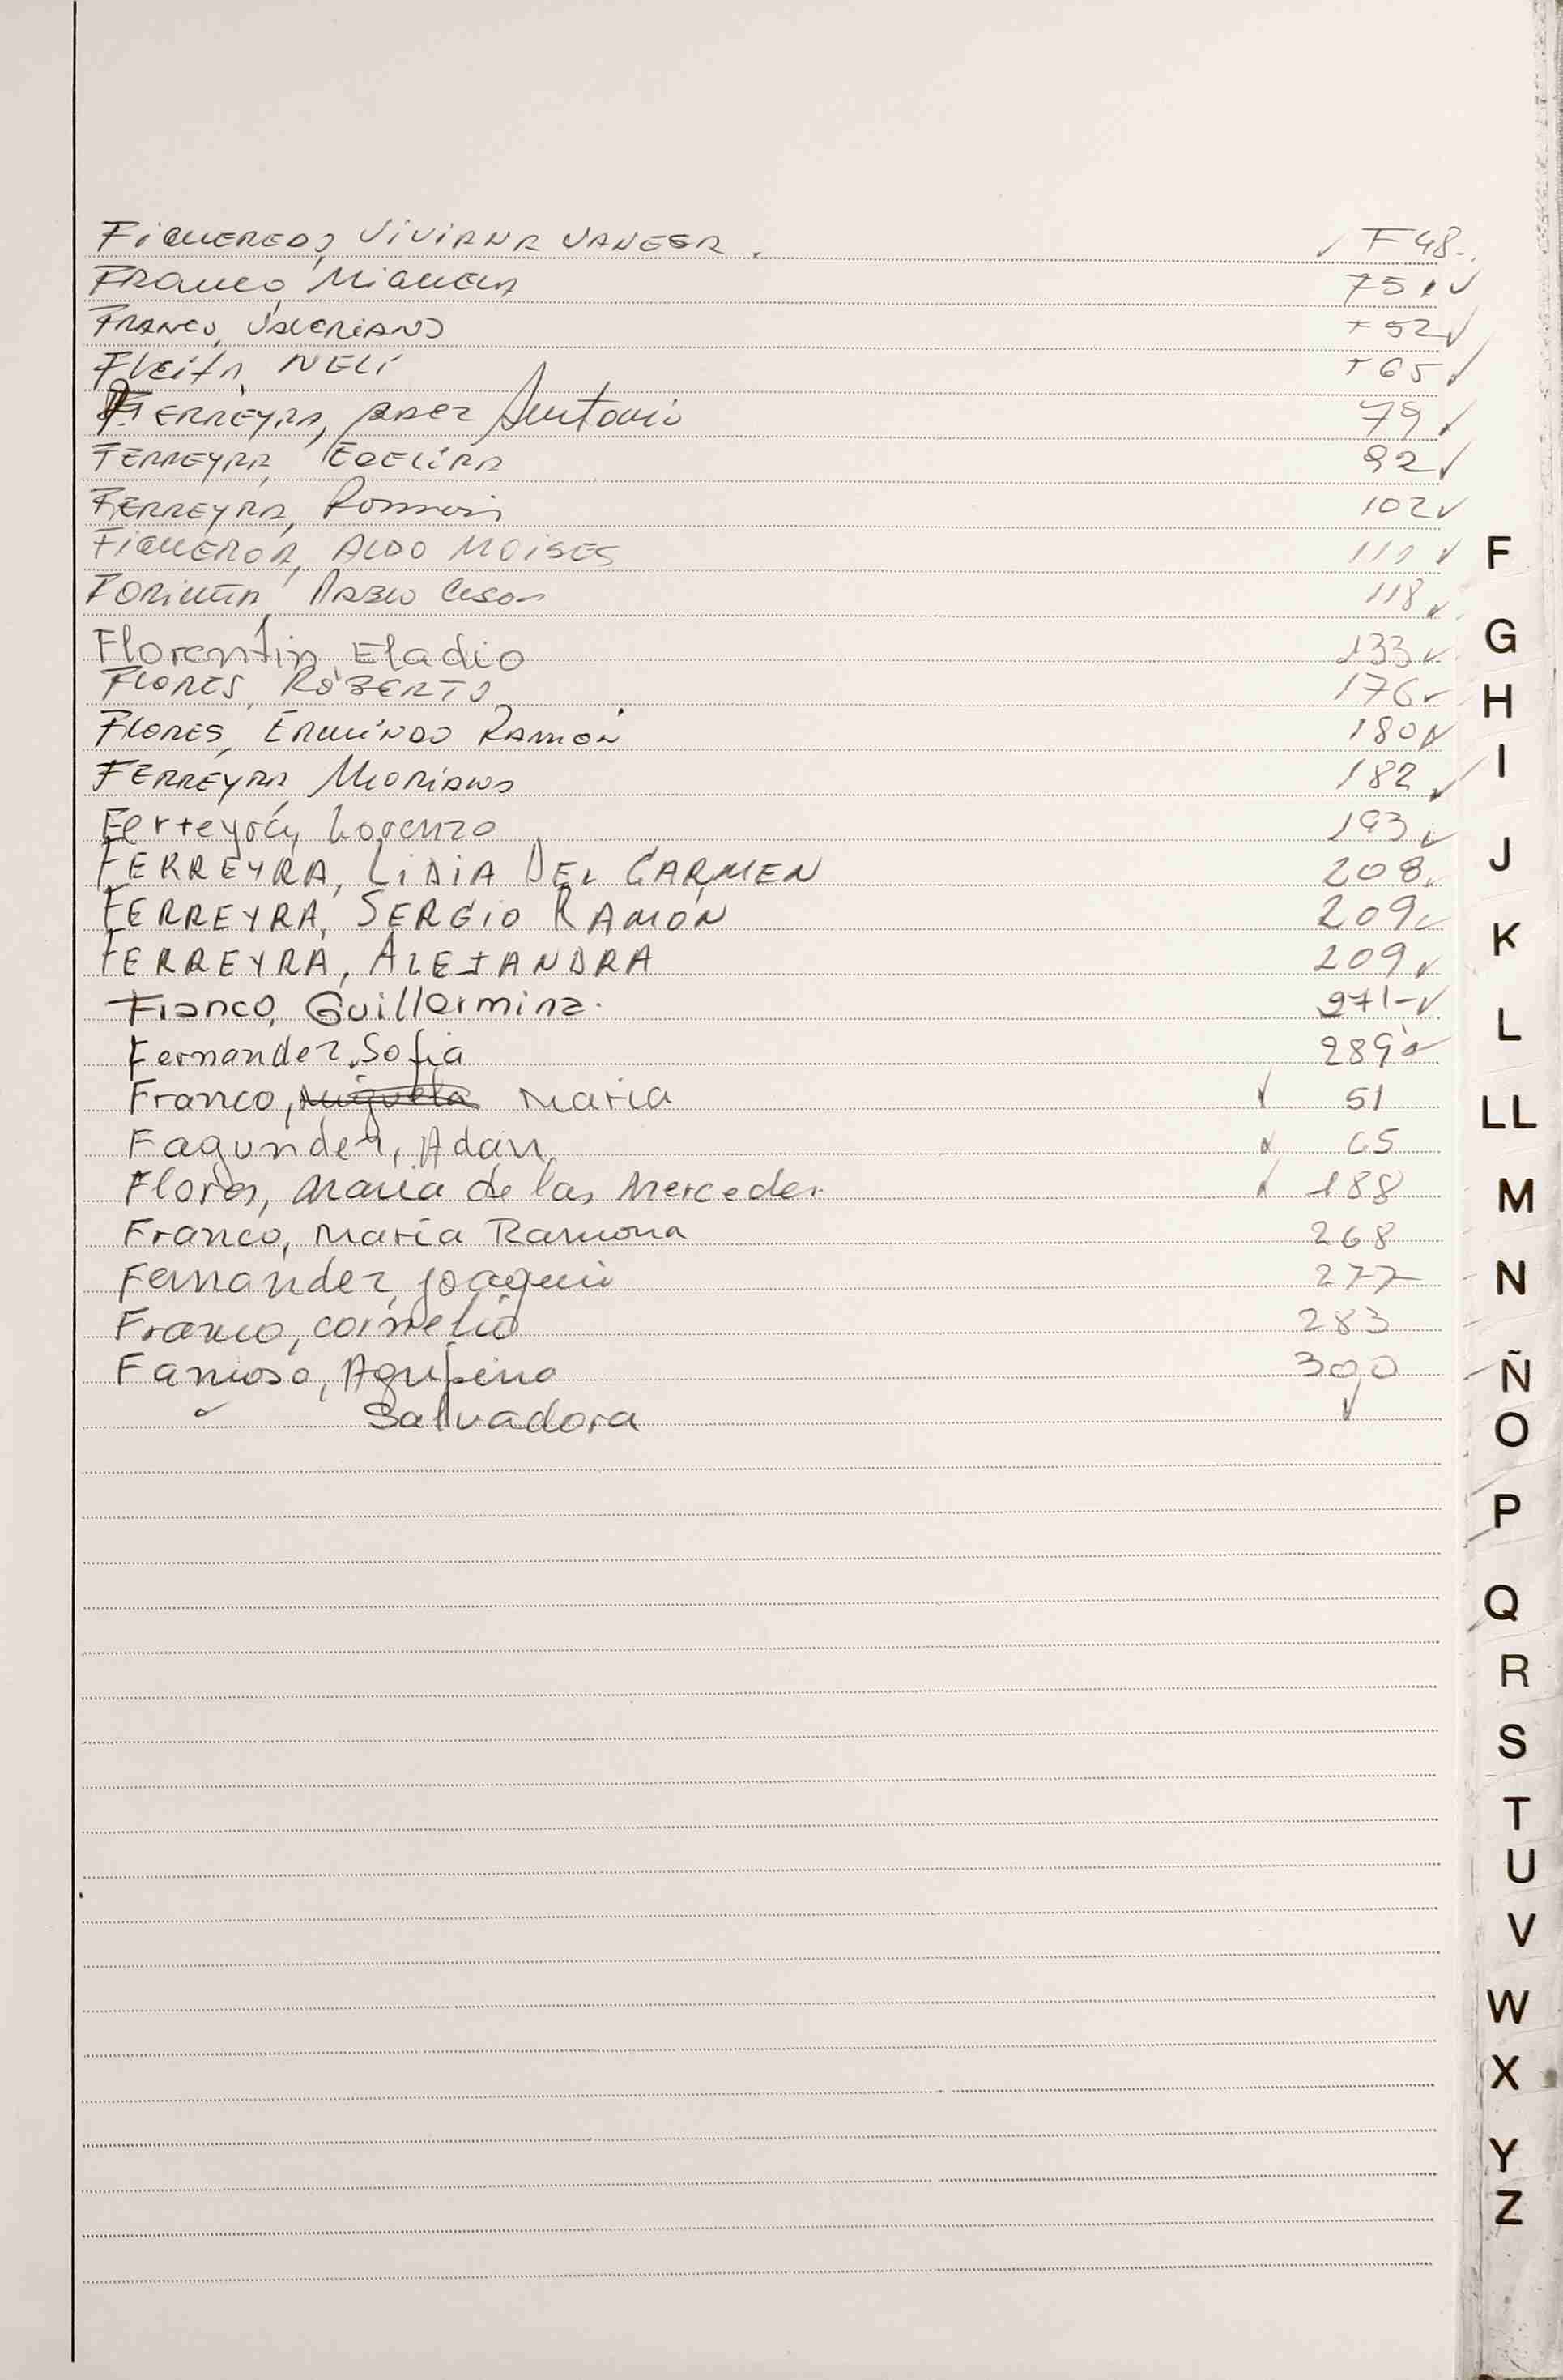 FIGUEREDO, VIVIANA VANESA. ✓ F 48.
FRANCO, MIGUELA 751 ✓
FRANCO, VALERIANO + 52 ✓
FLEITA, NELI + 65 ✓
FERREYRA, Antonio 79 ✓
FERREYRA, EDELIRA 92 ✓
FERREYRA, 102 ✓
FIGUEROA, ALDO MOISES 111 ✓
PABLO Cesar 118 ✓
Florentín, Eladio 133 ✓
FLORES, ROBERTO 176 ✓
FLORES, ERMINDO RAMÓN 180 ✓
FERREYRA, MARIANO 182 ✓
Ferreyra, Lorenzo 193 ✓
FERREYRA, LIDIA DEL CARMEN 208 ✓
FERREYRA, SERGIO RAMÓN 209 ✓
FERREYRA, ALEJANDRA 209 ✓
Franco, Guillermina. 271- ✓
Fernandez, Sofia 289 ✓
Franco, Miguela Maria ✓ 51
Fagundez, Adan ✓ 65
Flores, Maria de las Mercedes ✓ 188
Franco, María Ramona 268
Fernández, Joaquin 277
Franco, Cornelio 283
Famoso, Agripina 300
✓ Salvadora ✓
F
G
H
I
J
K
L
LL
M
N
Ñ
O
P
Q
R
S
T
U
V
W
X
Y
Z